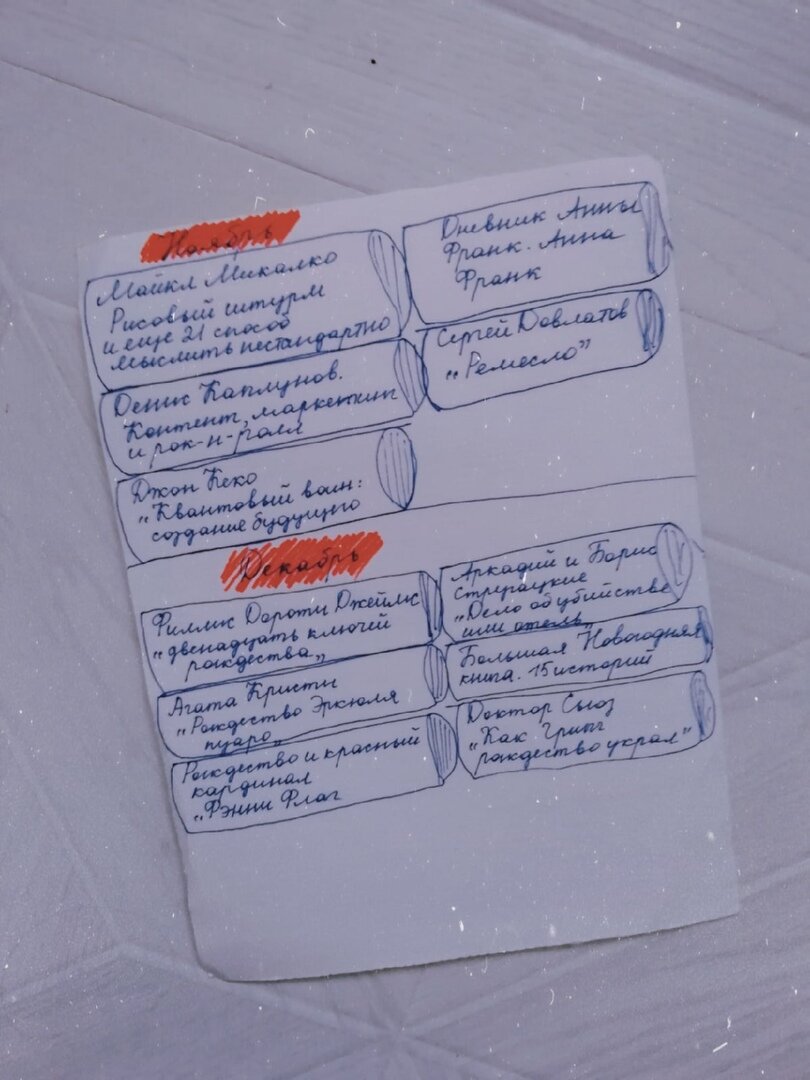 Ноябрь
Майкл Микалко
Рисовый штурм
и еще 21 способ
мыслить нестандартно
Денис Каплунов.
Контент, маркетинг
и рок-н-ролл
Джон Кехо
"Квантовый воин:
создание будущего
Дневник Анны
Франк. Анна
Франк
Сергей Довлатов
„Ремесло”
Декабрь
Филлис Дороти Джеймс
"двенадцать ключей
рождества„
Агата Кристи
"Рождество Эркюля
пуаро„
Рождество и красный
кардинал
„Фэнни Флаг
Аркадий и Борис
стругацкие
"Дело об убийстве
или отель„
Большая Новогодняя
книга. 15 историй
Доктор Сьюз
"Как Гринч
рождество украл"